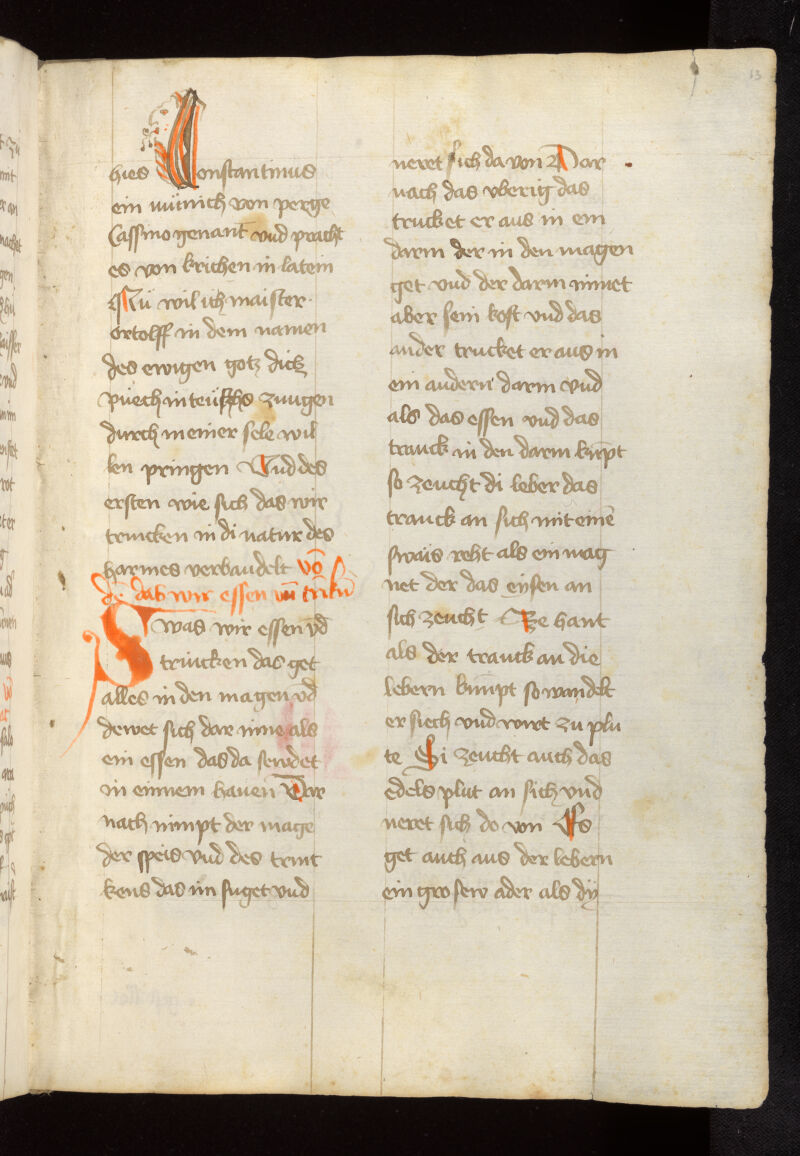 13
hies Constantinus
ein münich von perge
Cassino genant vnd pracht
es von krichen in latein
Nü wil ich maister
ortolff in dem namen
des ewigen gotz dicz
puech in teüschs zungen
durch meiner sele wil
len pringen Vnd des
ersten wie sich das wir
trincken in di natur des
harmes verbandelt võ
dẽ das wir essen vñ trĩkñ
Swas wir essen vñd
trincken das get
alles in den magen vñd
dewet sich dar inne als
ein essen das da sewdet
in einnem haven Dar
nach nimpt der mage
der speis vnd des trint
kens das im fuget vnd
neret sich da von Dar
nach das vberig das
trucket er aus in ein
darm der in den magen
get vnd der darm nimet
aber sein kost vnd das
ander trucket er aus in
ein andern darm vnd
als das essen vnd das
tranck in den darm kũpt
so zeucht di leber das
tranck an sich mit einẽ
swais reht als ein mag
net der das eysen an
sich zeucht Ze hant
als der tranck an die
lebern kumpt so wandelt
er siech vnd wirt zu plu
te Si zeucht auch das
edels plut an sich vnd
neret sich do von Es
get auch aus der lebern
ein gro sew ader als dy